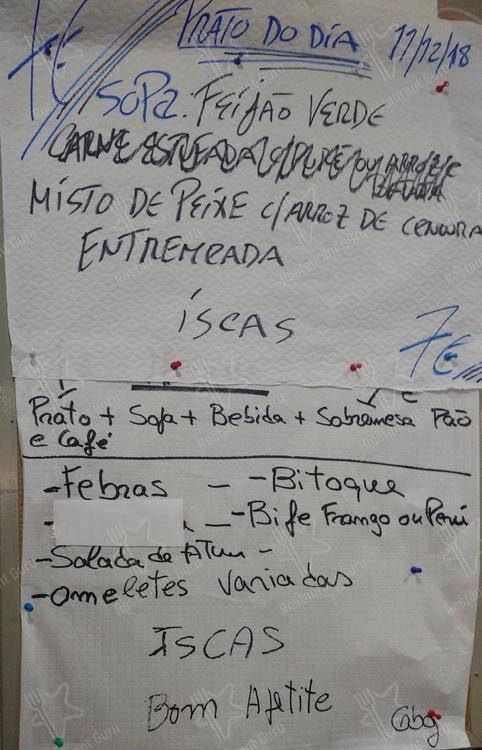 7€ PRATO DO DIA 11/12/18
SOPA. FEIJÃO VERDE
CARNE ESTUFADA C/PURÉ OU ARROZ
MISTO DE PEIXE C/ARROZ DE CENOURA
ENTREMEADA
ÍSCAS
7€
Prato + Sopa + Bebida + Sobremesa Pão
e Café
-Febras - -Bitoque
- -Bife Frango ou Peru
-Salada de Atum -
-omeletes variadas
ISCAS
Bom Apetite